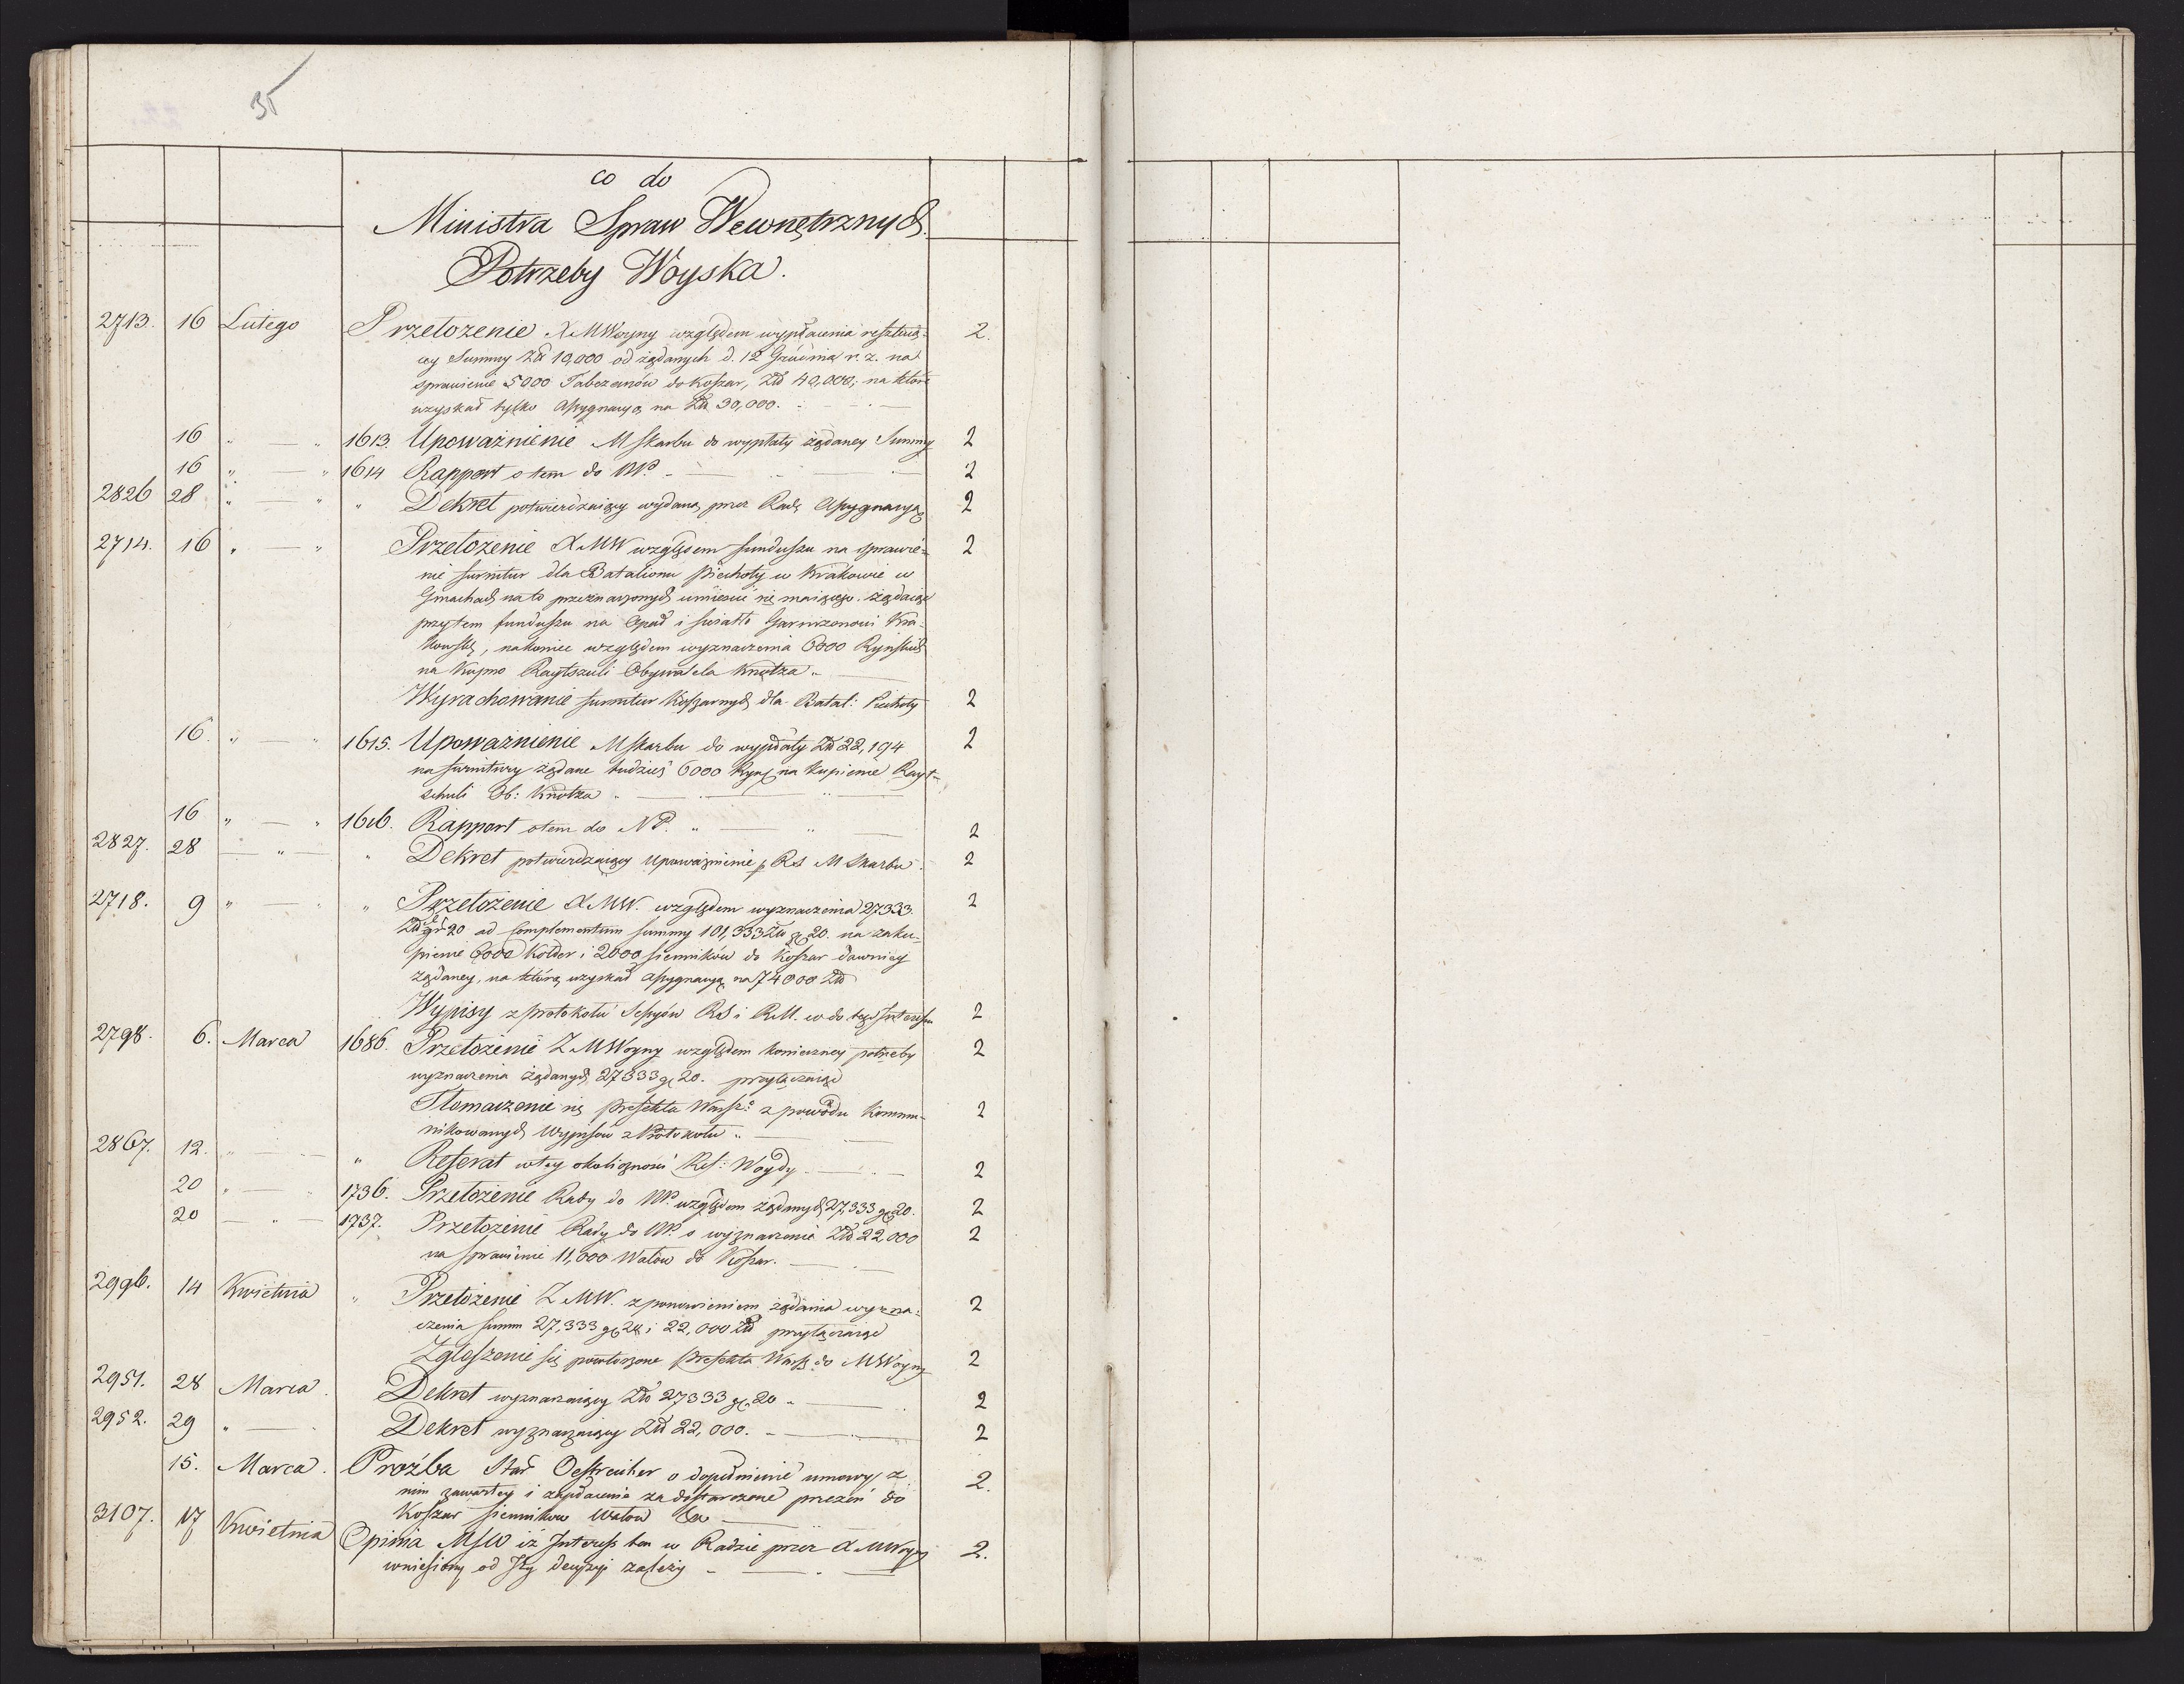 35
co do
Ministra Spraw Wewnętrznych.
Potrzeby Woyska.
2713. 16 Lutego Przełożenie XMWoyny względem wypłacenia resztuią- 2.
cey Summy Zł 10,000 od żądanych d. 12 Grudnia r. z. na
sprawienie 5000 Tabczanów do Koszar, Zł 40,000, na które
uzyskał tylko Assygnacyą na Zł 30,000.
16 " — " 1613. Upoważnienie MSkarbu do wypłaty żądaney Summy 2
16 " — " 1614 Rapport o tem do NP. 2
2826 28 " — " " Dekret potwierdzaiący wydaną przez Radę Assygnacyą 2
2714. 16 " — " Przełożenie XMW względem funduszu na sprawie- 2
nie furnitur dla Batalionu piechoty w Krakowie w
Gmachach na to przeznaczonych umieścić się maiącego. żądaiąc
przytem funduszu na Opał i światło Garnizonowi Kra-
kowsk, nakoniec względem wyznaczenia 6000 Ryńskich
na Kupno Raytszuli Obywatela Knotza "
Wyrachowanie furnitur Koszarnych dla Batal: Piechoty 2
16. " — " 1615. Upoważnienie MSkarbu do wypłaty Zł 22,194 2
na furnitury żądane tudzież 6000 Ryn na Kupienie Rayt-
schuli Ob: Knotza "
16 " — " 1616. Rapport o tem do NP. " 2
2827. 28 — " — " Dekret potwierdzaiący Upoważnienie p RS M Skarbu 2
2718. 9 " — " " Przełożenie XMW. względem wyznaczenia 27333. 2
Zł gr 20 ad Complementum summy 101,333 Zł gr 20. na zaku-
pienie 6000 Kołder i 2000 sienników do Koszar dawniey
żądaney, na którą uzyskał Assygnacyą na 74000 Zł
Wypisy z protokołu Sessyów RS i RM. co do tego Interessu 2
2798. 6. Marca 1686. Przełożenie ZMWoyny względem konieczney potrzeby 2
wyznaczenia żądanych 27333 gr 20. przyłączaiąc
Tłomaczenie się prefekta Warsz: z powodu Kommu- 2
nikowanych Wypisów z Protokołu "
2867. 12. " — " Referat w tey okoliczności Ref: Woydy 2
20 " — 1736. Przełożenie Rady do NP. względem żądanych 27,333 gr 20. 2
20 — " — 1737. Przełożenie Rady do NP. o wyznaczenie Zł 22,000 2
na sprawienie 11,000 Wałów do Koszar.
2996. 14 Kwietnia " Przełożenie ZMW. z ponowieniem żądania wyzna- 2
czenia summ 27,333 gr 20 i 22,000 Zł przyłączaiąc
Zgłoszenie się powtórzone Prefekta Warsz: do MWoyny 2
2951. 28 Marca. Dekret wyznaczaiący Zł 27333 gr. 20 - 2
2952. 29 " — Dekret wyznaczaiący Zł 22,000. - 2
15. Marca. Proźba Star Oestreicher o dopełnienie umowy z 2.
nim zawartey i zapłacenia za dostarczone przezeń do
Koszar sienników wałów &a
3107. 17 Kwietnia Opinia MSW iż Interess ten w Radzie przez XMWoyny 2.
wniesiony od Jey decyzyi zależy -